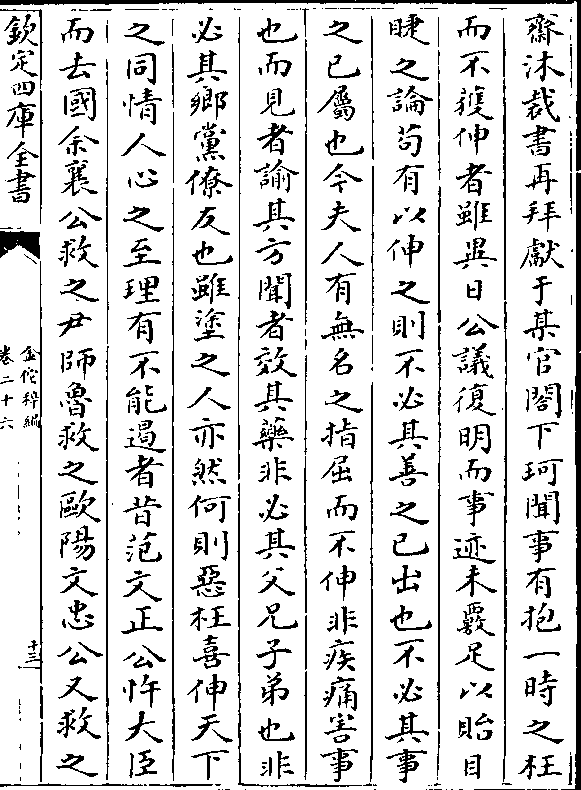 齋沐裁書再拜獻于某官閣下珂聞事有抱一時之枉
而不獲伸者雖異日公議復明而事迹未覈足以貽目
睫之論苟有以伸之則不必其善之已出也不必其事
之已屬也今夫人有無名之指屈而不伸非疾痛害事
也而見者諭其方聞者效其藥非必其父兄子弟也非
必其鄉黨僚友也雖塗之人亦然何則惡枉喜伸天下
之同情人心之至理有不能遏者昔范文正公忤大臣
而去國余襄公救之尹師魯救之歐陽文忠公又救之
欽定四庫全書
金佗稡編
卷二十六
十三